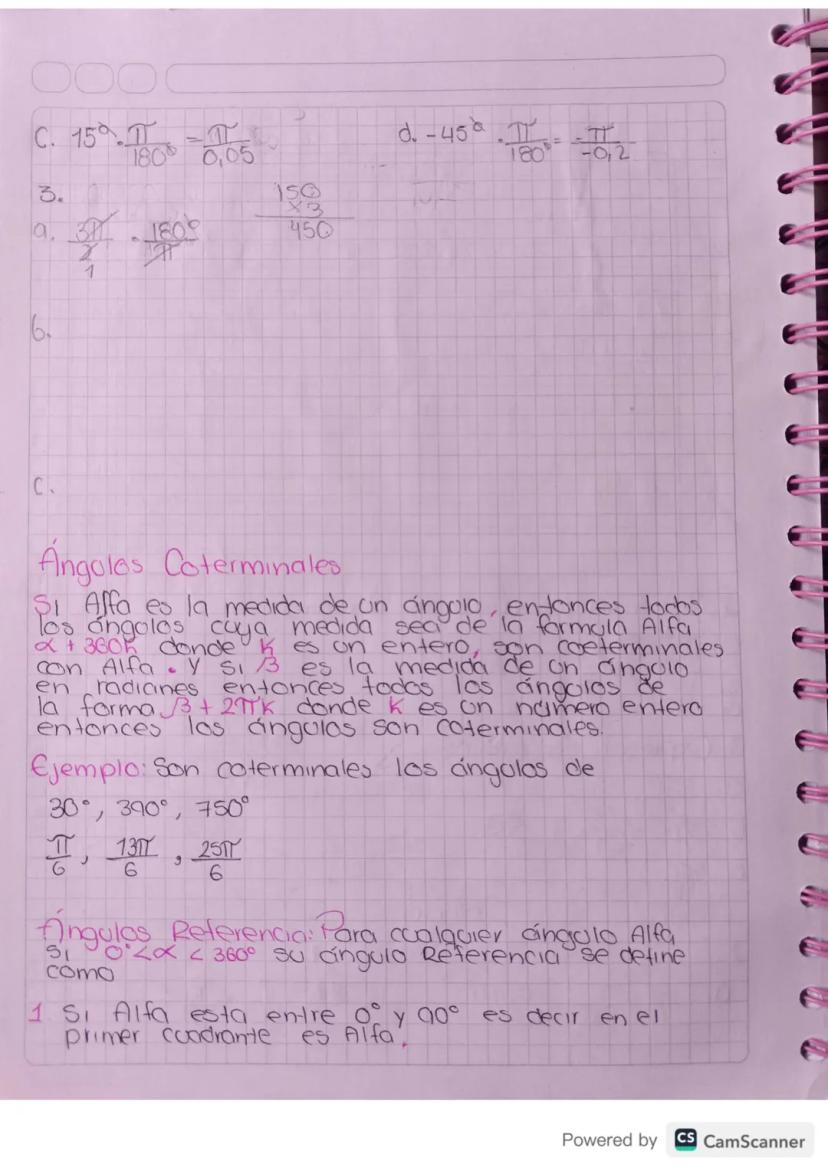 C. 15° · π/180° = π/0,05
d. -45° · π/180° = -π/-0,2
3.
a. 3π/2 · 180°/π
1
150
x3
450
b.
c.
Ángulos Coterminales
Si Alfa es la medida de un ángulo, entonces todos
los ángulos cuya medida sea de la formula Alfa
α + 360K donde K es un entero, son coeterminales
con Alfa. Y si β es la medida de un ángulo
en radianes entonces todos los ángulos de
la forma β + 2πK donde K es un número entero
entonces los ángulos son coterminales.
Ejemplo: Son coterminales los ángulos de
30°, 390°, 750°
π/6, 13π/6, 25π/6
Ángulos Referencia: Para cualquier ángulo Alfa
si 0°<α<360° su ángulo Referencia se define
como
1 Si Alfa esta entre 0° y 90° es decir en el
primer cuadrante es Alfa.
Powered by CS CamScanner